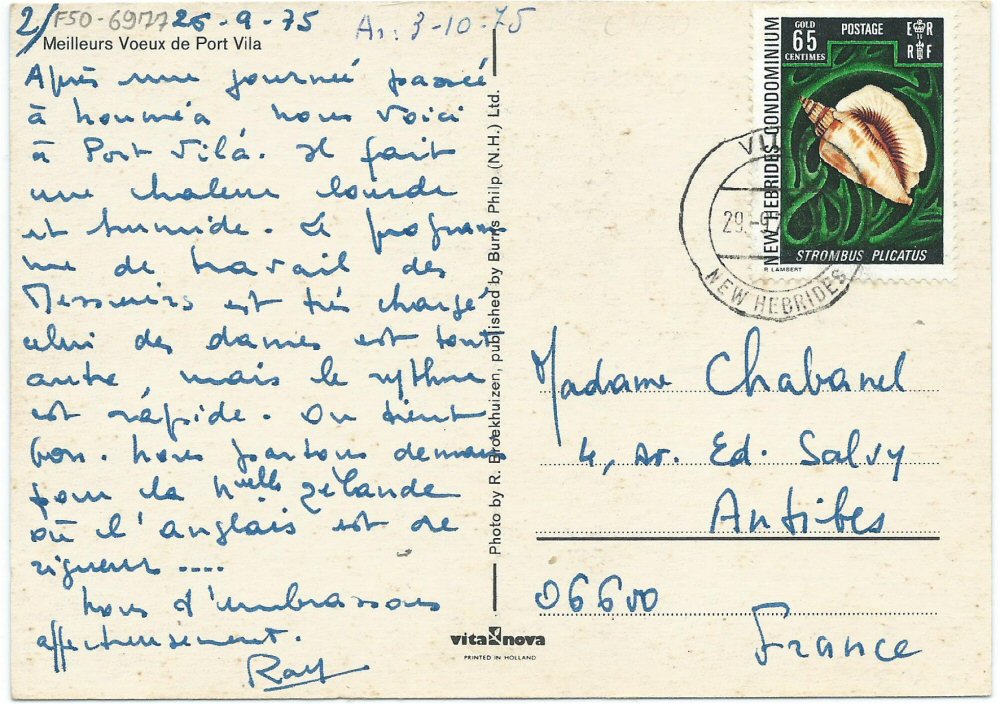 2/ F50-69/77 26-9-75 Ar: 3-10-75
Meilleurs Voeux de Port Vila
Après une journée passée
à Nouméa nous voici
à Port Vila. Il fait
une chaleur lourde
et humide. Le program
me de travail des
Messieurs est très chargé
celui des dames est tout
autre, mais le rythme
est rapide. On tient
bon. Nous partons demain
pour la Nuelle Zélande
où l'anglais est de
rigueur ....
affectueusement.
Photo by R. Broekhuizen, published by Burns Philp (N.H.) Ltd.
vita nova
PRINTED IN HOLLAND
GOLD
65
CENTIMES
POSTAGE
E R
R F
NEW HEBRIDES CONDOMINIUM
STROMBUS PLICATUS
P. LAMBERT
VILA
29.-9
NEW HEBRIDES
Madame Chabanel
4, av. Ed. Salvy
Antibes
06600
France